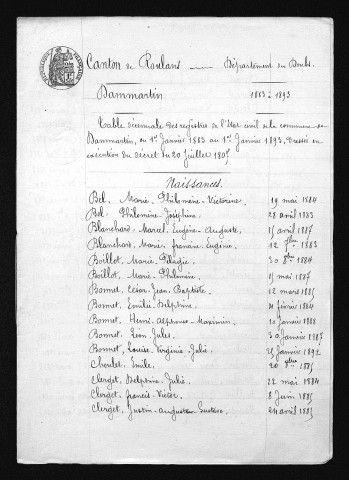 Canton de Roulans — Département du Doubs.
Dammartin 1883 à 1893.
Table décennale des registres de l'état civil de la commune de
Dammartin, du 1er Janvier 1883 au 1er Janvier 1893. Dressée en
exécution du décret du 20 Juillet 1807
Naissances.
Bel, Marie Philomène Victorine 19 mai 1884
Bel Philomène Joséphine 28 avril 1883
Blanchard Marcel Eugène Auguste, 15 avril 1887
Blanchard Marie Eugénie 12 1883
Boillot Marie Pélagie 30 1884
Boillot, Marie Philomène 15 mai 1887
Bonnet, César Jean Baptiste 12 mars 1885
Bonnet, Emilie Delphine février 1884
Bonnet, Henri Alphonse Maximin 10 janvier 1888
Bonnet, Léon Jules 30 Janvier 1887
Bonnet, Louise Virginie Julie 28 Janvier 1892
Emile 20 1885
Clerget, Delphine Julie 22 mai 1884
Clerget, Francis Victor 8 Juin 1885
Clerget, Justin Auguste Gustave 24 avril 1885